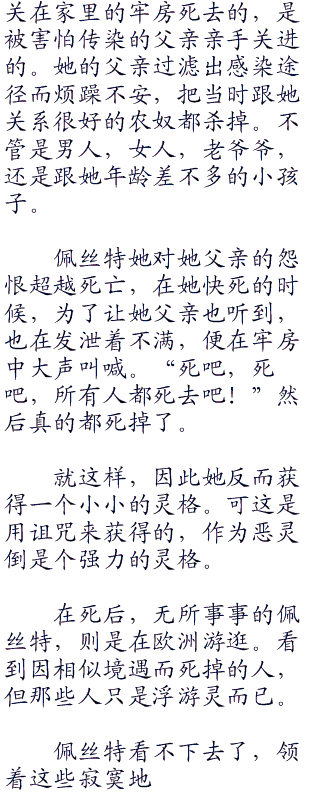 关在家里的牢房死去的，是
被害怕传染的父亲亲手关进
的。她的父亲过滤出感染途
径而烦躁不安，把当时跟她
关系很好的农奴都杀掉。不
管是男人，女人，老爷爷，
还是跟她年龄差不多的小孩
子。
佩丝特她对她父亲的怨
恨超越死亡，在她快死的时
候，为了让她父亲也听到，
也在发泄着不满，便在牢房
中大声叫喊。“死吧，死
吧，所有人都死去吧！”然
后真的都死掉了。
就这样，因此她反而获
得一个小小的灵格。可这是
用诅咒来获得的，作为恶灵
倒是个强力的灵格。
在死后，无所事事的佩
丝特，则是在欧洲游逛。看
到因相似境遇而死掉的人，
但那些人只是浮游灵而已。
佩丝特看不下去了，领
着这些寂寞地